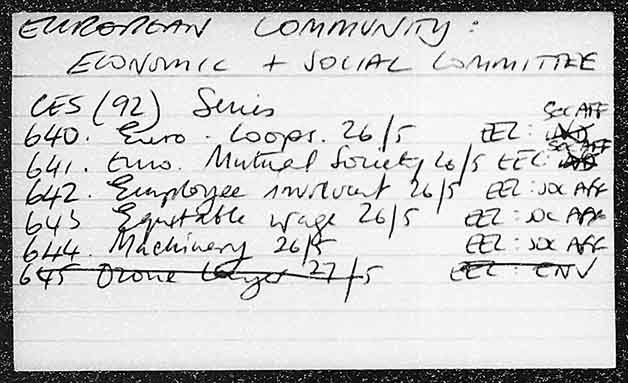 EUROPEAN COMMUNITY:
ECONOMIC + SOCIAL COMMITTEE
CES (92) Series
640. Euro. Coops. 26/5 EEC: SOC AFF
641. Euro. Mutual Society 26/5 EEC: SOC AFF
642. Employee involvent 26/5 EEC: SOC AFF
643 Equitable wage 26/5 EEC: SOC AFF
644. Machinery 26/5 EEC: SOC AFF
645 Ozone Layer 27/5 EEC: ENV